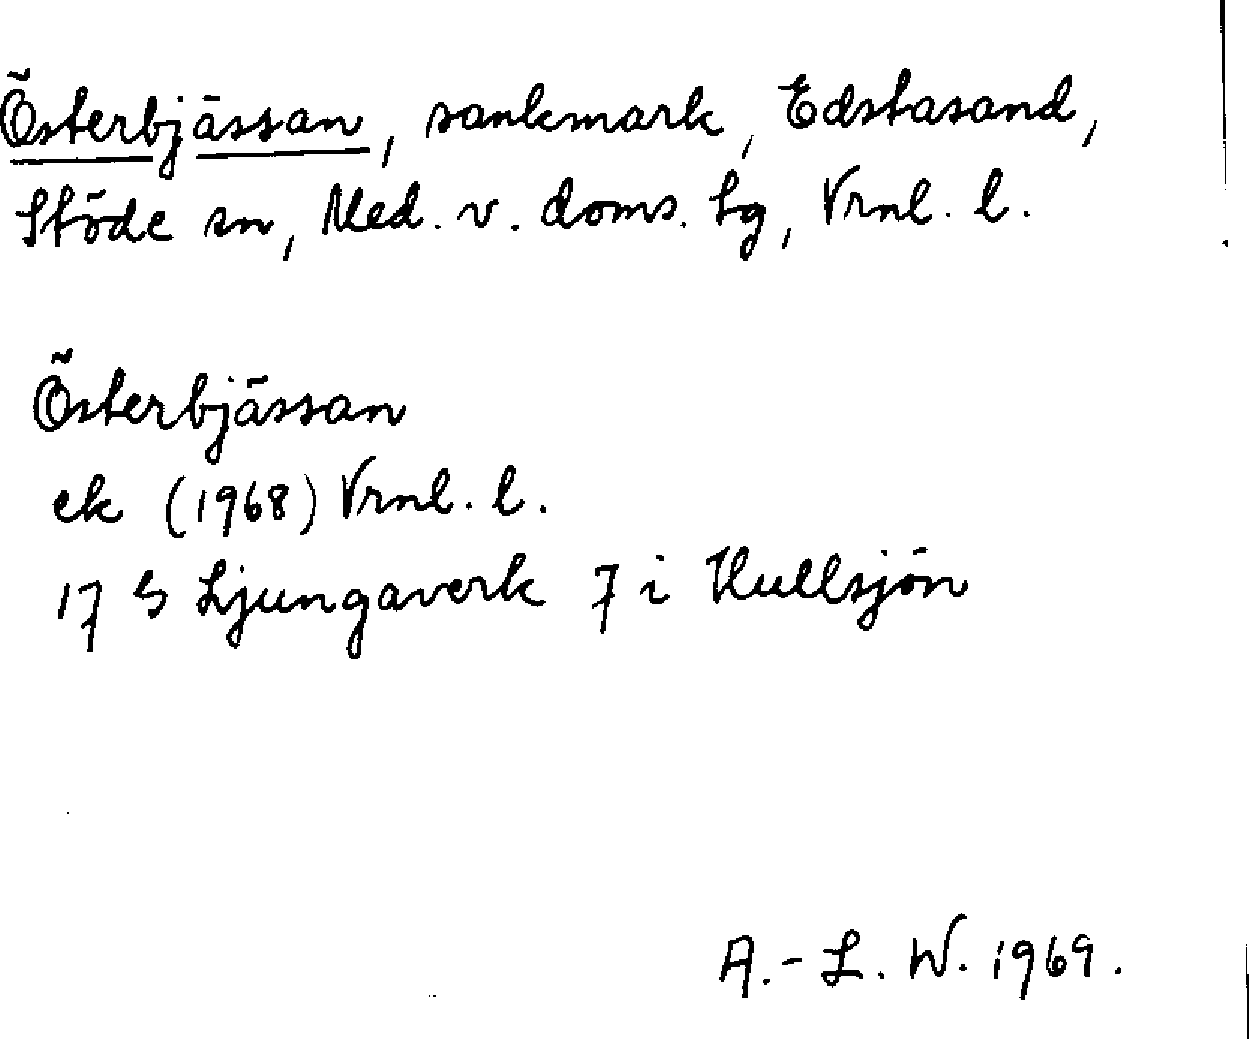 Österbjässan, sankmark, Edstasand,
Stöde sn, Med. v. doms. tg, Vrnl. l.
Österbjässan
ek (1968) Vrnl. l.
17 G Ljungaverk 7 i Hullsjön
A.-L. W. 1969.